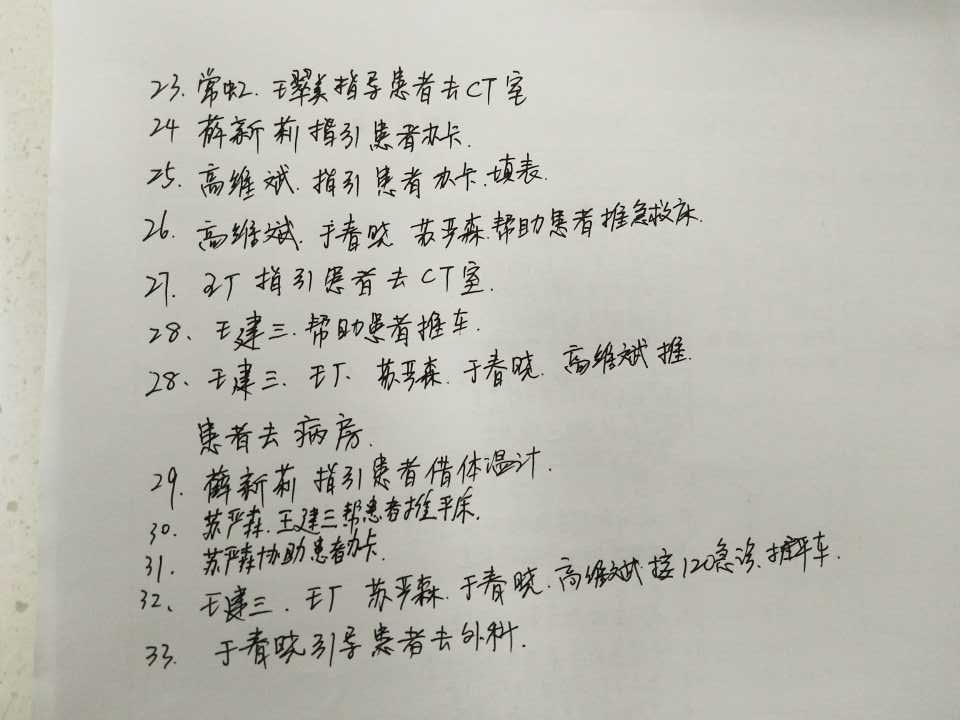 23. 常虹. 王翠美指导患者去CT室
24 薛新莉指引患者办卡.
25. 高维斌. 指引患者办卡.填表.
26. 高维斌. 于春晓 苏严森.帮助患者推急救床.
27. 王丁 指引患者去CT室.
28、王建三.帮助患者推车.
28、王建三. 王丁. 苏严森. 于春晓. 高维斌 推.
患者去病房.
29. 薛新莉 指引患者借体温计.
30. 苏严森.王建三帮患者推平床.
31. 苏严森协助患者办卡.
32、王建三. 王丁 苏严森. 于春晓.高维斌 接120急诊.推平车.
33. 于春晓引导患者去外科.